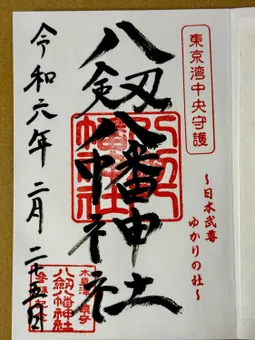 東京湾中央守護
～日本武尊
ゆかりの社～
八剱八幡神社
令和六年二月二十五日
木更津 鎮守
八剱八幡神社
参拝記念